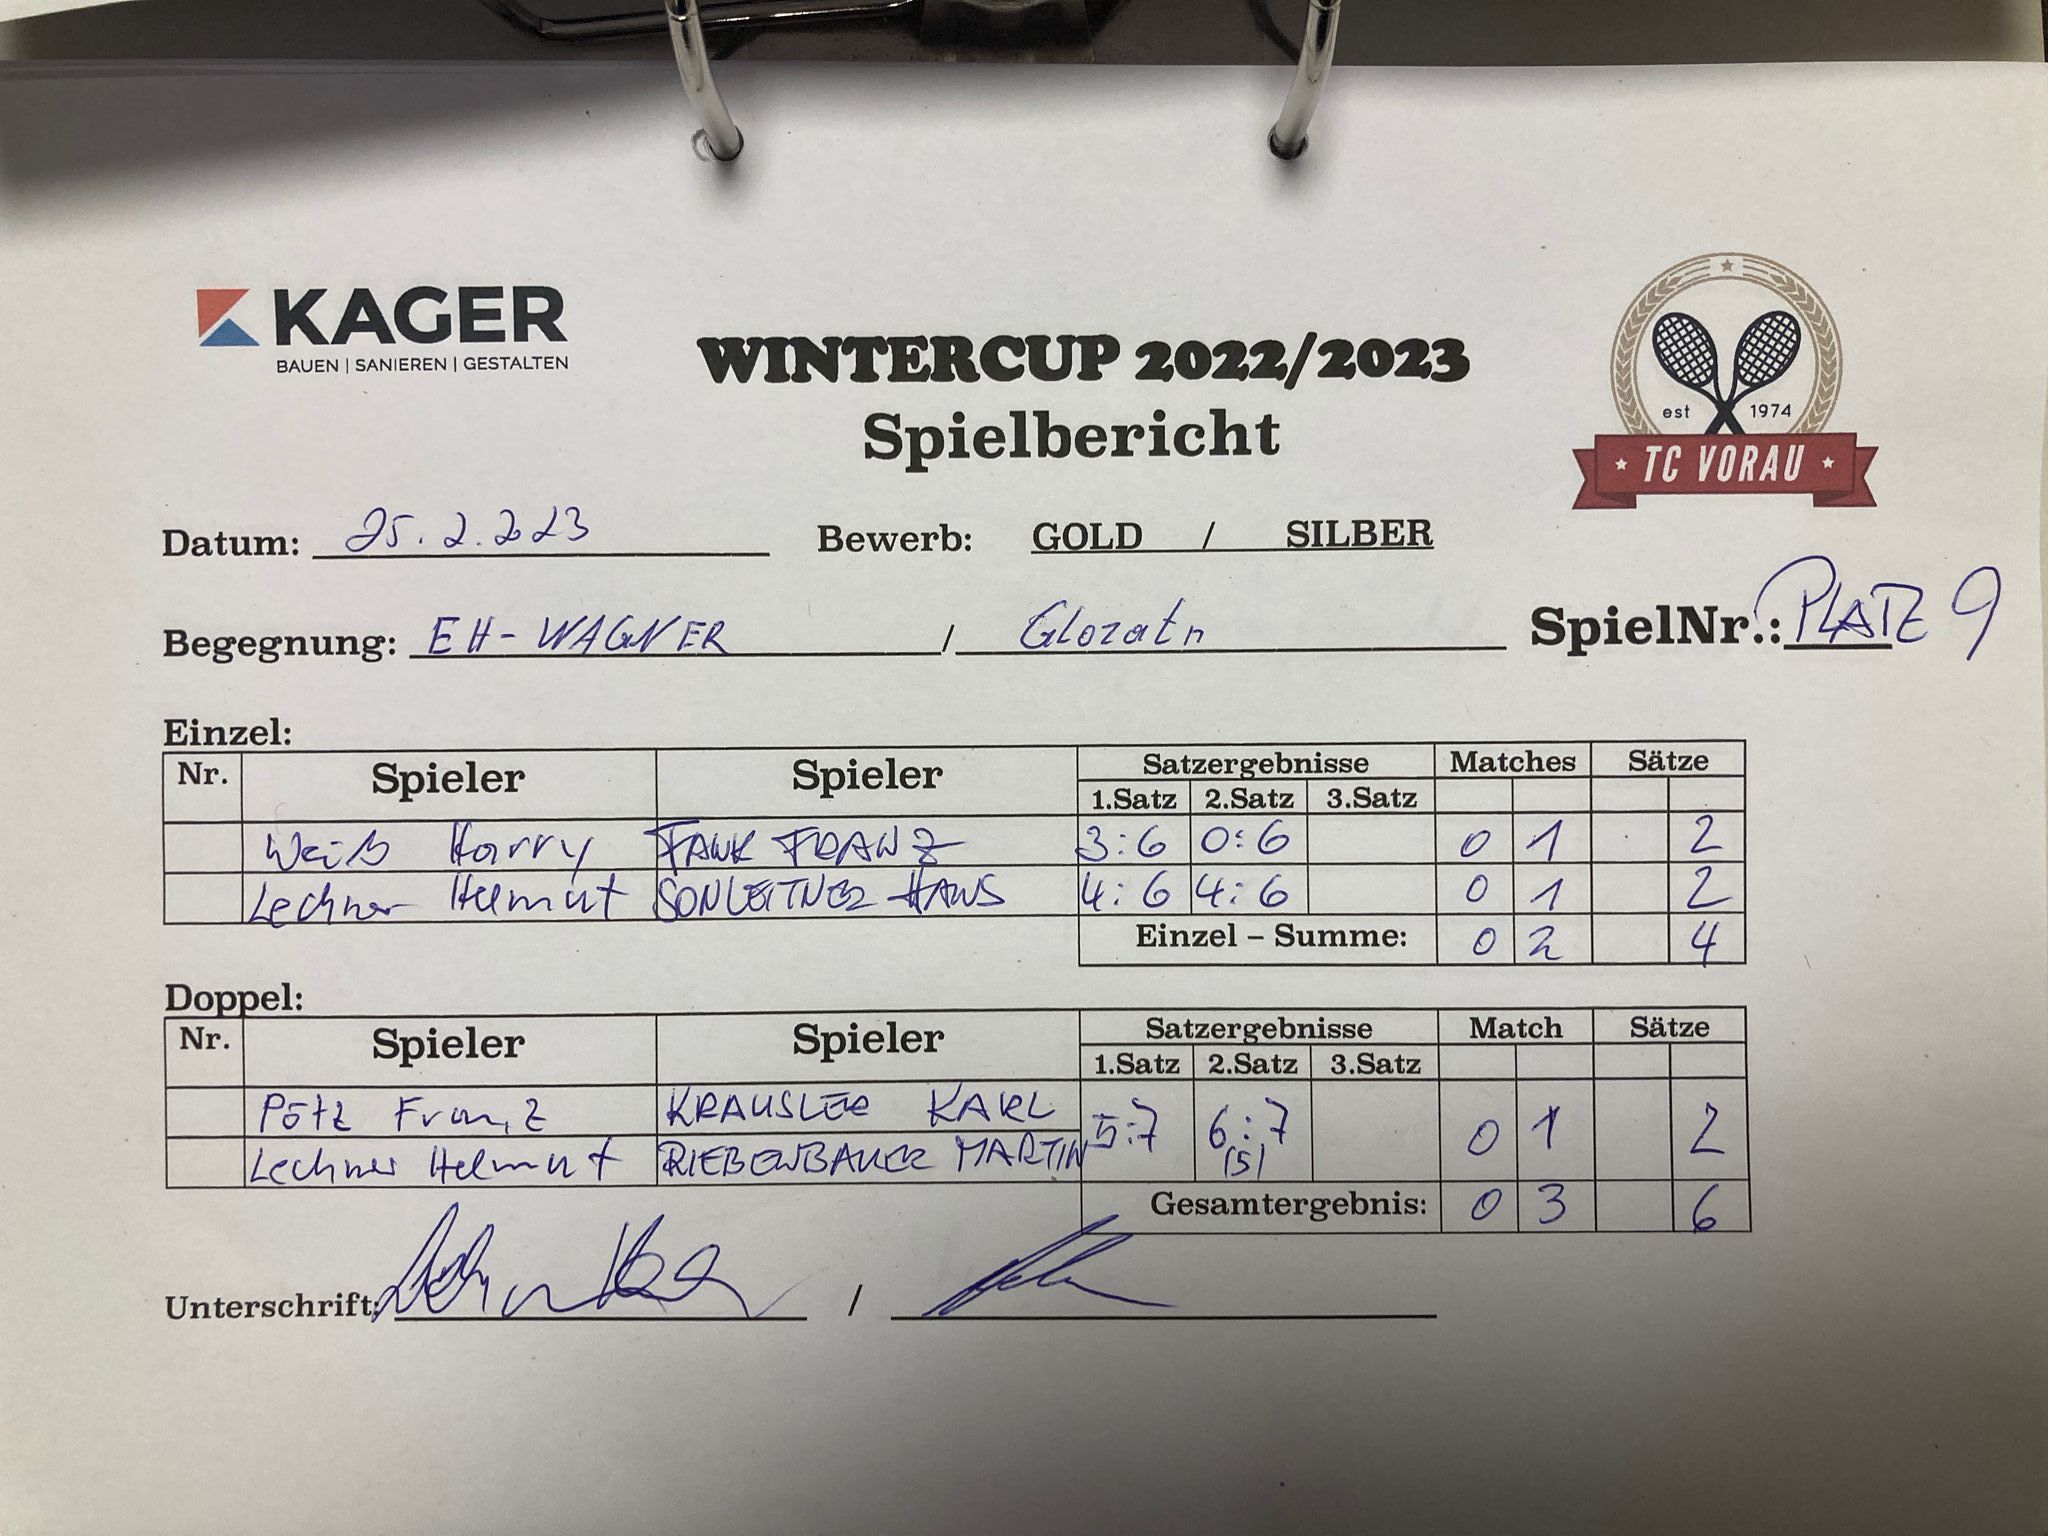 KAGER
BAUEN | SANIEREN | GESTALTEN
WINTERCUP 2022/2023
Spielbericht
est 1974
TC VORAU
Datum: 25.2.2023 Bewerb: GOLD / SILBER
Begegnung: EH-WAGNER / Glozatn SpielNr.: PLATZ 9
Einzel:
Nr. Spieler Spieler Satzergebnisse Matches Sätze
1.Satz 2.Satz 3.Satz
Weiß Harry FANK FRANZ 3:6 0:6 0 1 2
Lechner Helmut SONLEITNER HANS 4:6 4:6 0 1 2
Einzel – Summe: 0 2 4
Doppel:
Nr. Spieler Spieler Satzergebnisse Match Sätze
1.Satz 2.Satz 3.Satz
Pötz Franz KRAUSLER KARL 5:7 6:7 0 1 2
Lechner Helmut RIEBENBAUER MARTIN (5)
Gesamtergebnis: 0 3 6
Unterschrift: /